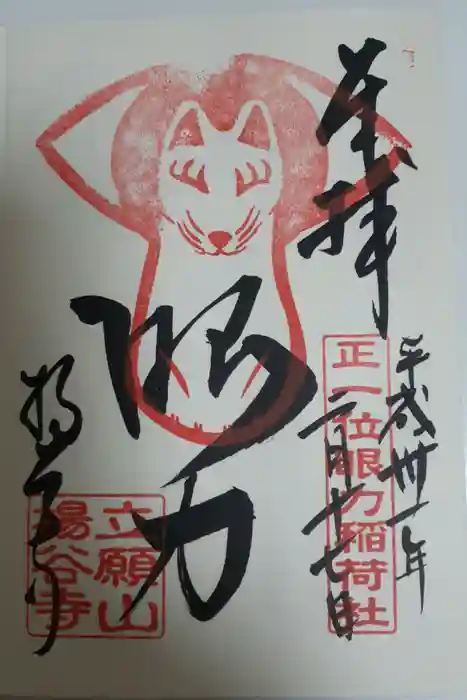 奉拝
平成卅一年
二月十七日
正一位眼力稲荷社
眼力
楊谷寺
立願山
楊谷寺